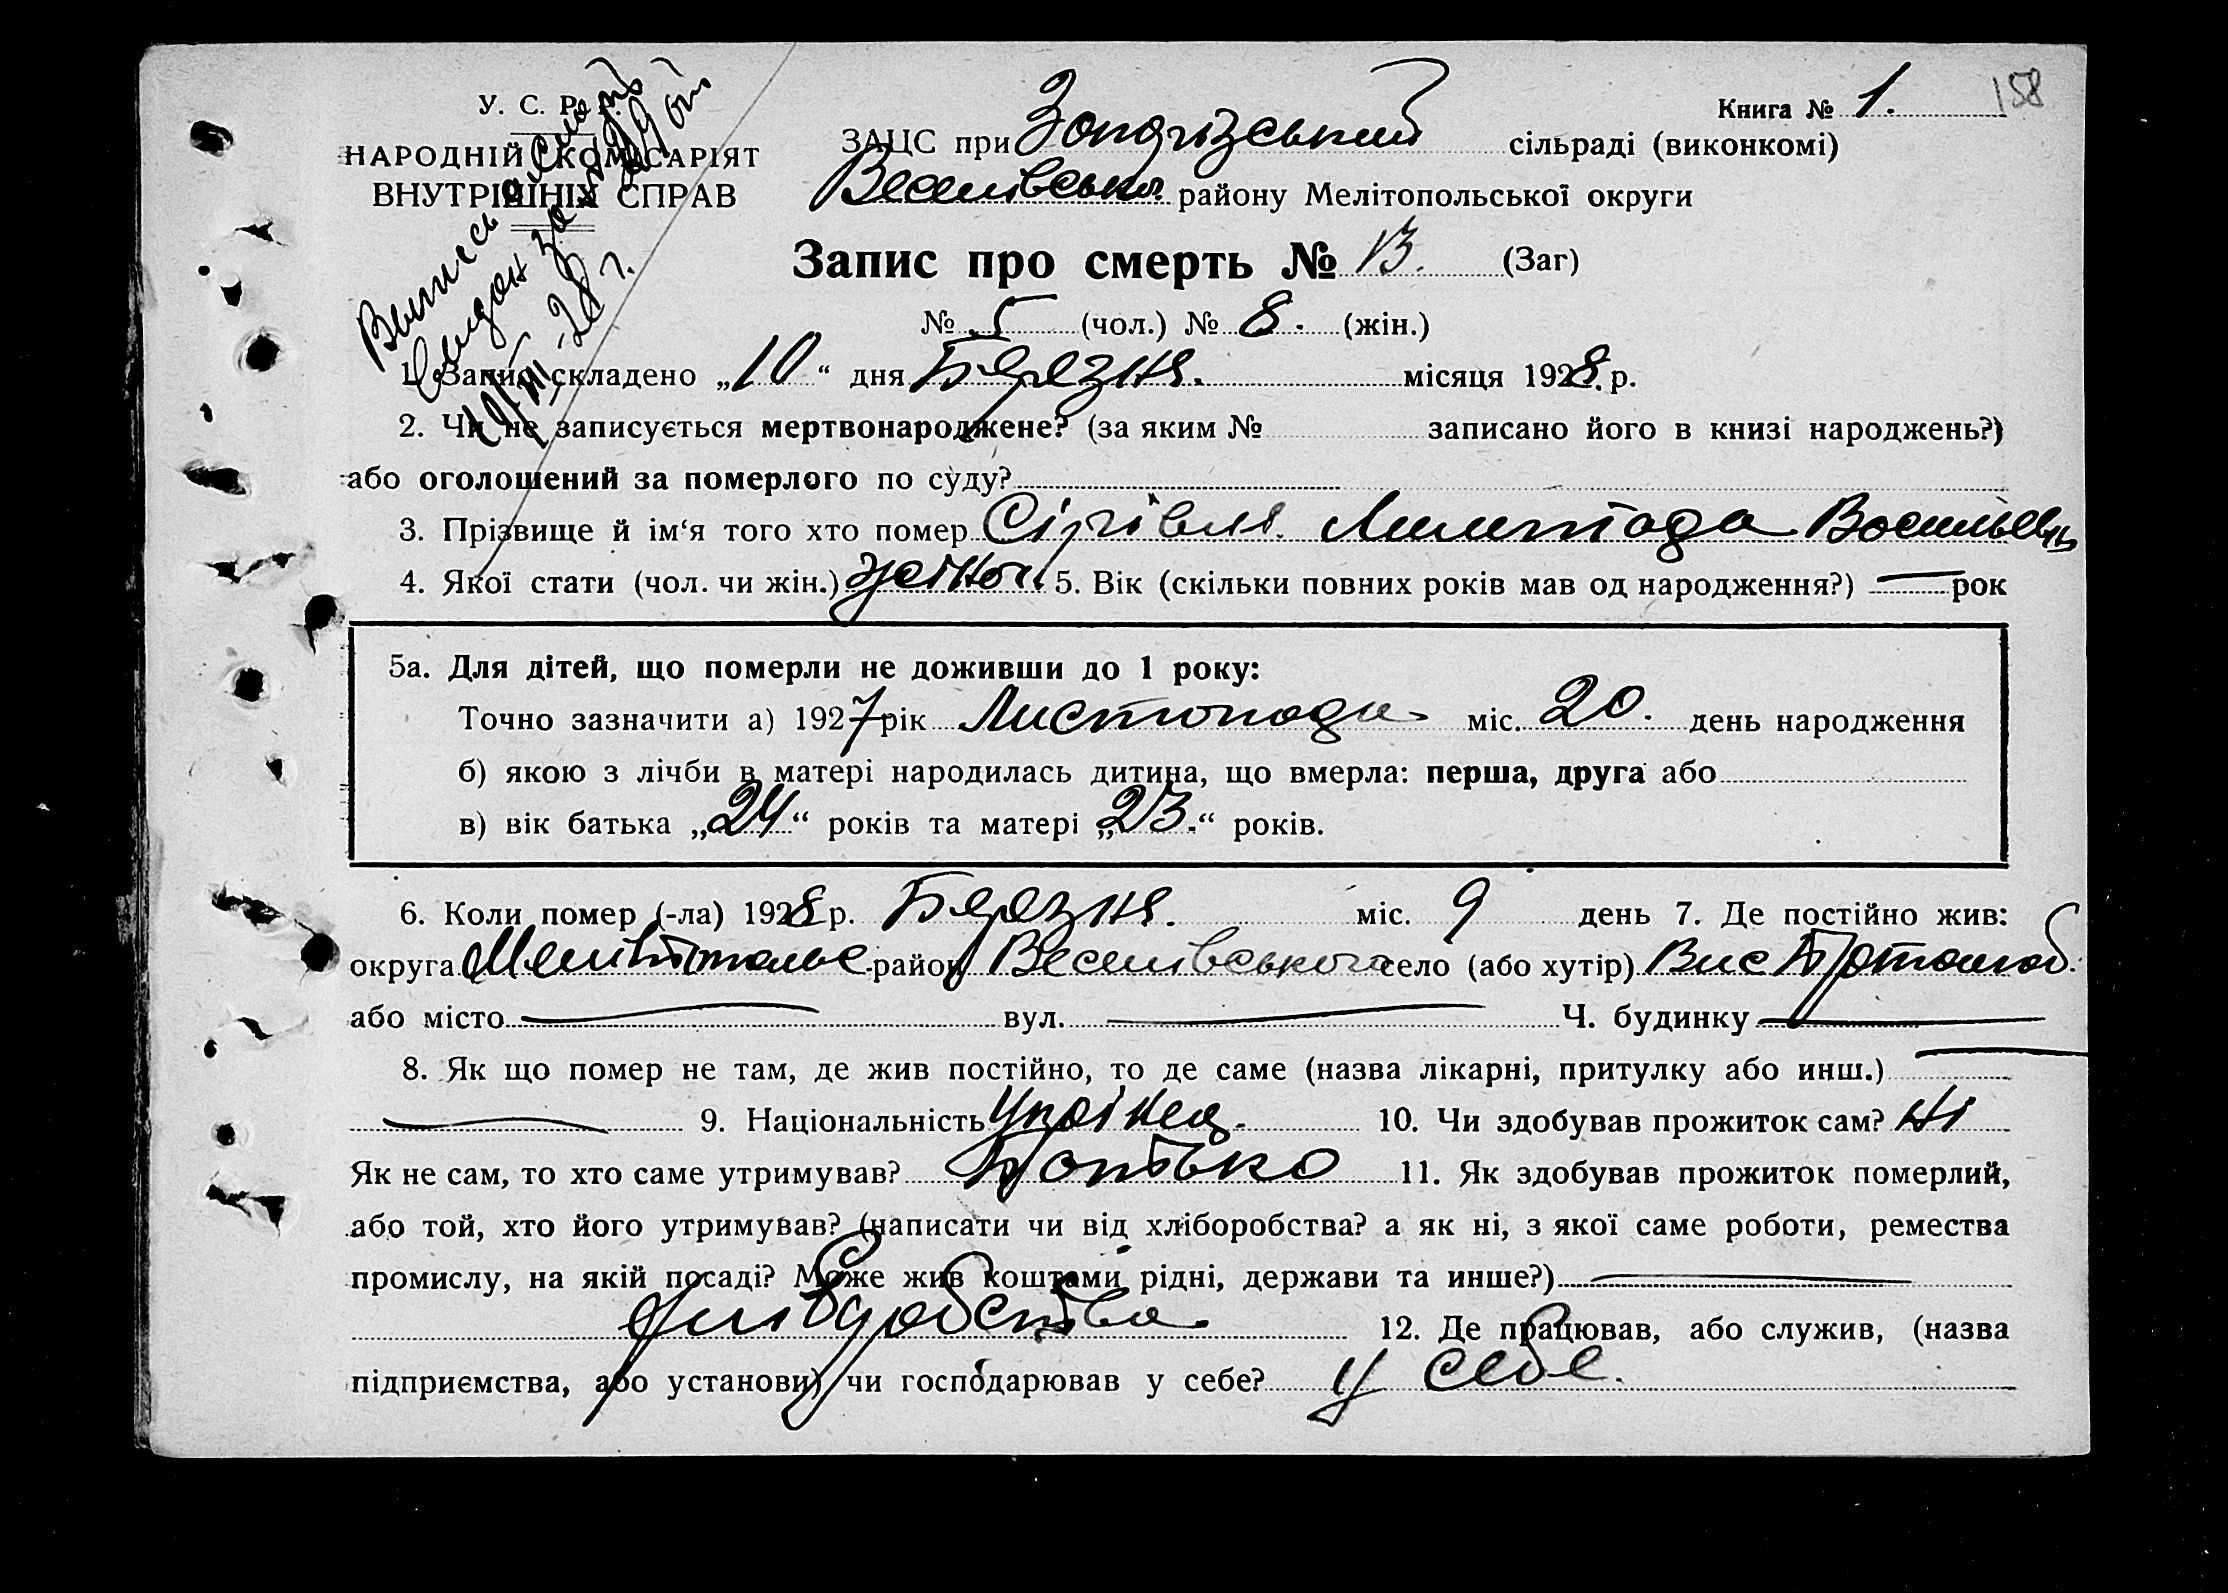 158
У. С. Р. Р.
Книга № 1.
НАРОДНІЙ КОМІСАРІЯТ
ВНУТРІШНІХ СПРАВ
ЗАЦС при сільраді (виконкомі)
Веселівсько. району Мелітопольської округи
Запис про смерть № 13. (Заг)
№ 5 (чол.) № 8. (жін.)
Выпись о смерти
за № 29
28 г.
1. Запис складено „10“ дня Березня. місяця 1928. р.
2. Чи не записується мертвонароджене? (за яким № записано його в книзі народжень?)
або оголошений за померлого по суду?
3. Прізвище й ім‘я того хто помер
4. Якої стати (чол. чи жін.) жіноч. 5. Вік (скільки повних років мав од народження?) — рок
5а. Для дітей, що померли не доживши до 1 року:
Точно зазначити а) 1927 рік Листопада міс. 20. день народження
б) якою з лічби в матері народилась дитина, що вмерла: перша, друга або
в) вік батька „24“ років та матері „23.“ років.
6. Коли помер (-ла) 1928 р. Березня. міс. 9 день 7. Де постійно жив:
округа Мелітопольс район Веселівського село (або хутір)
або місто — вул. — Ч. будинку —
8. Як що помер не там, де жив постійно, то де саме (назва лікарні, притулку або инш.) —
— 9. Національність Украінец. 10. Чи здобував прожиток сам? Ні
Як не сам, то хто саме утримував? Батько 11. Як здобував прожиток померлий,
або той, хто його утримував? (написати чи від хліборобства? а як ні, з якої саме роботи, ремества
промислу, на якій посаді? Може жив коштами рідні, держави та инше?) —
хліборобства 12. Де працював, або служив, (назва
підприємства, або установи) чи господарював у себе? у себе.